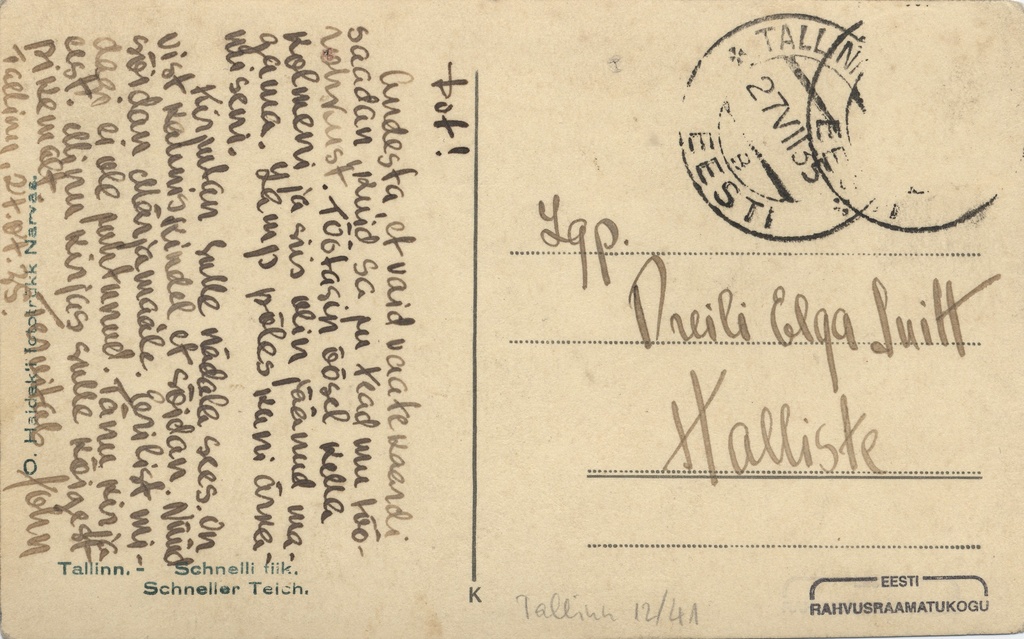 Hei!
Andesta et vaid vaatekaardi
saadan kuid sa ju tead mu töö-
rohkust. Töötasin öösel kella
kolmeni ja siis olin jäänud ma-
gama. Lamp põles kuni ärka-
miseni.
Kirjutan Sulle nädala sees. On
vist kahjuks kindel et sõidan. Nüüd
sõidan Märjamaale. Erilist mi-
dagi ei ole juhtunud. Tänu kirja
eest. Minu kirjas sulle kõigest
pikemalt. Tervitab John
Tallinn, 27.07.35.
O. Haidekli fototrükk Narvas.
Tallinn. - Schnelli tiik.
Schneller Teich.
K
TALLINN
27 VII 35
EESTI
Lgp.
Preili Elga Suitt
Halliste
Tallinn 12/41
EESTI
RAHVUSRAAMATUKOGU